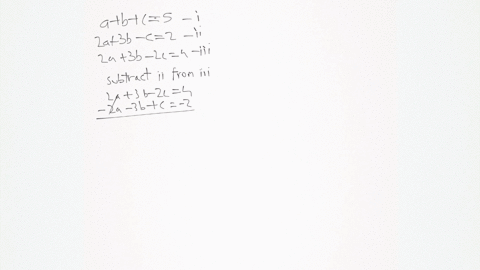 a+b+c=5 - i
2a+3b-c=2 - ii
2a+3b-2c=4 - iii
subtract ii from iii
2a+3b-2c=4
-2a-3b+c=-2